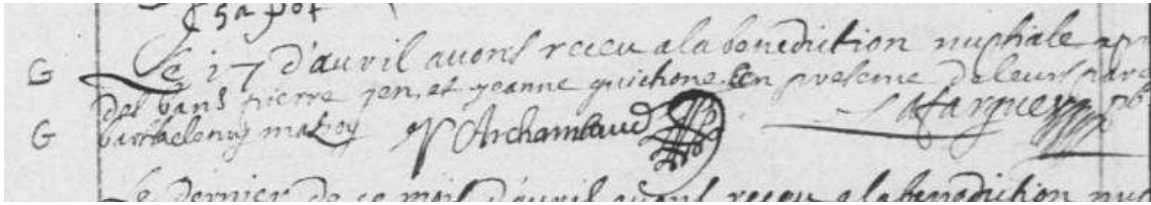 Le 17 d'auril auons receu a la benediction nuptiale apr
G
des bans pierre jen, et jeanne guichone. en presence de leurs pare
G
barthelemy P Archambaud Lafargue pb
Le dernier de ce mois d'auril auons receu a la benediction nup